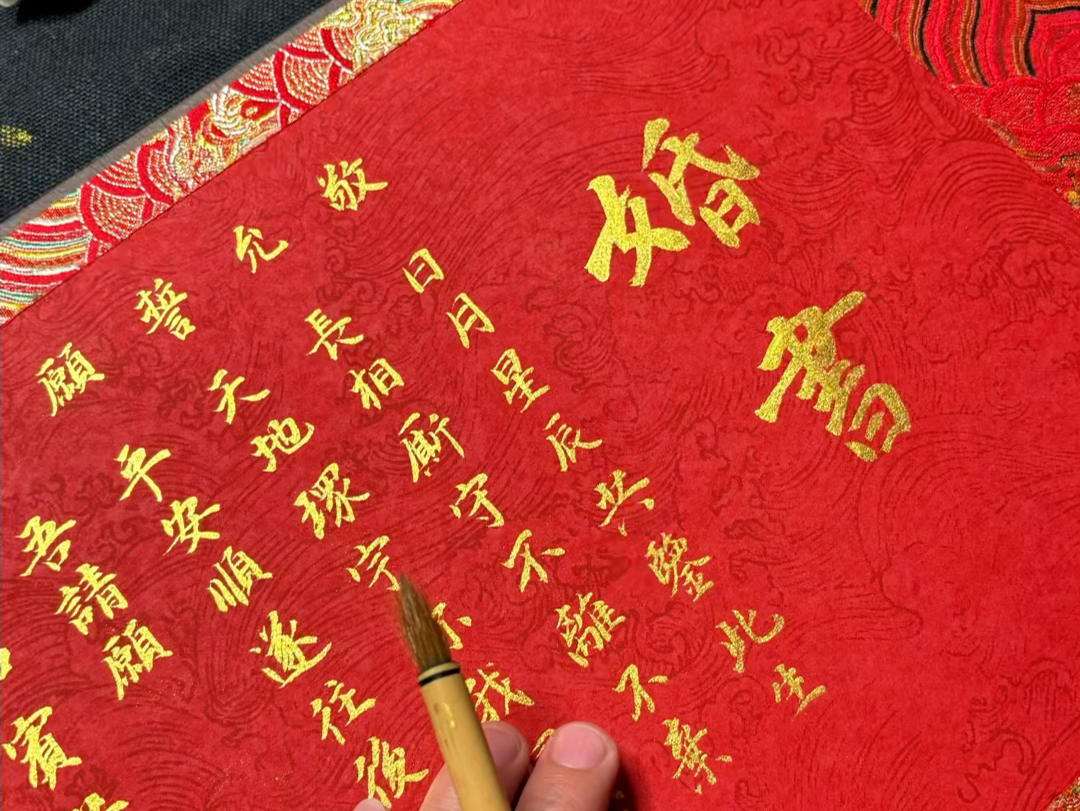 婚書
敬 日月星辰共鑒此生
允 長相廝守不離不棄
誓 天地環宇 我
願 平安順遂往後
吾請願
賓